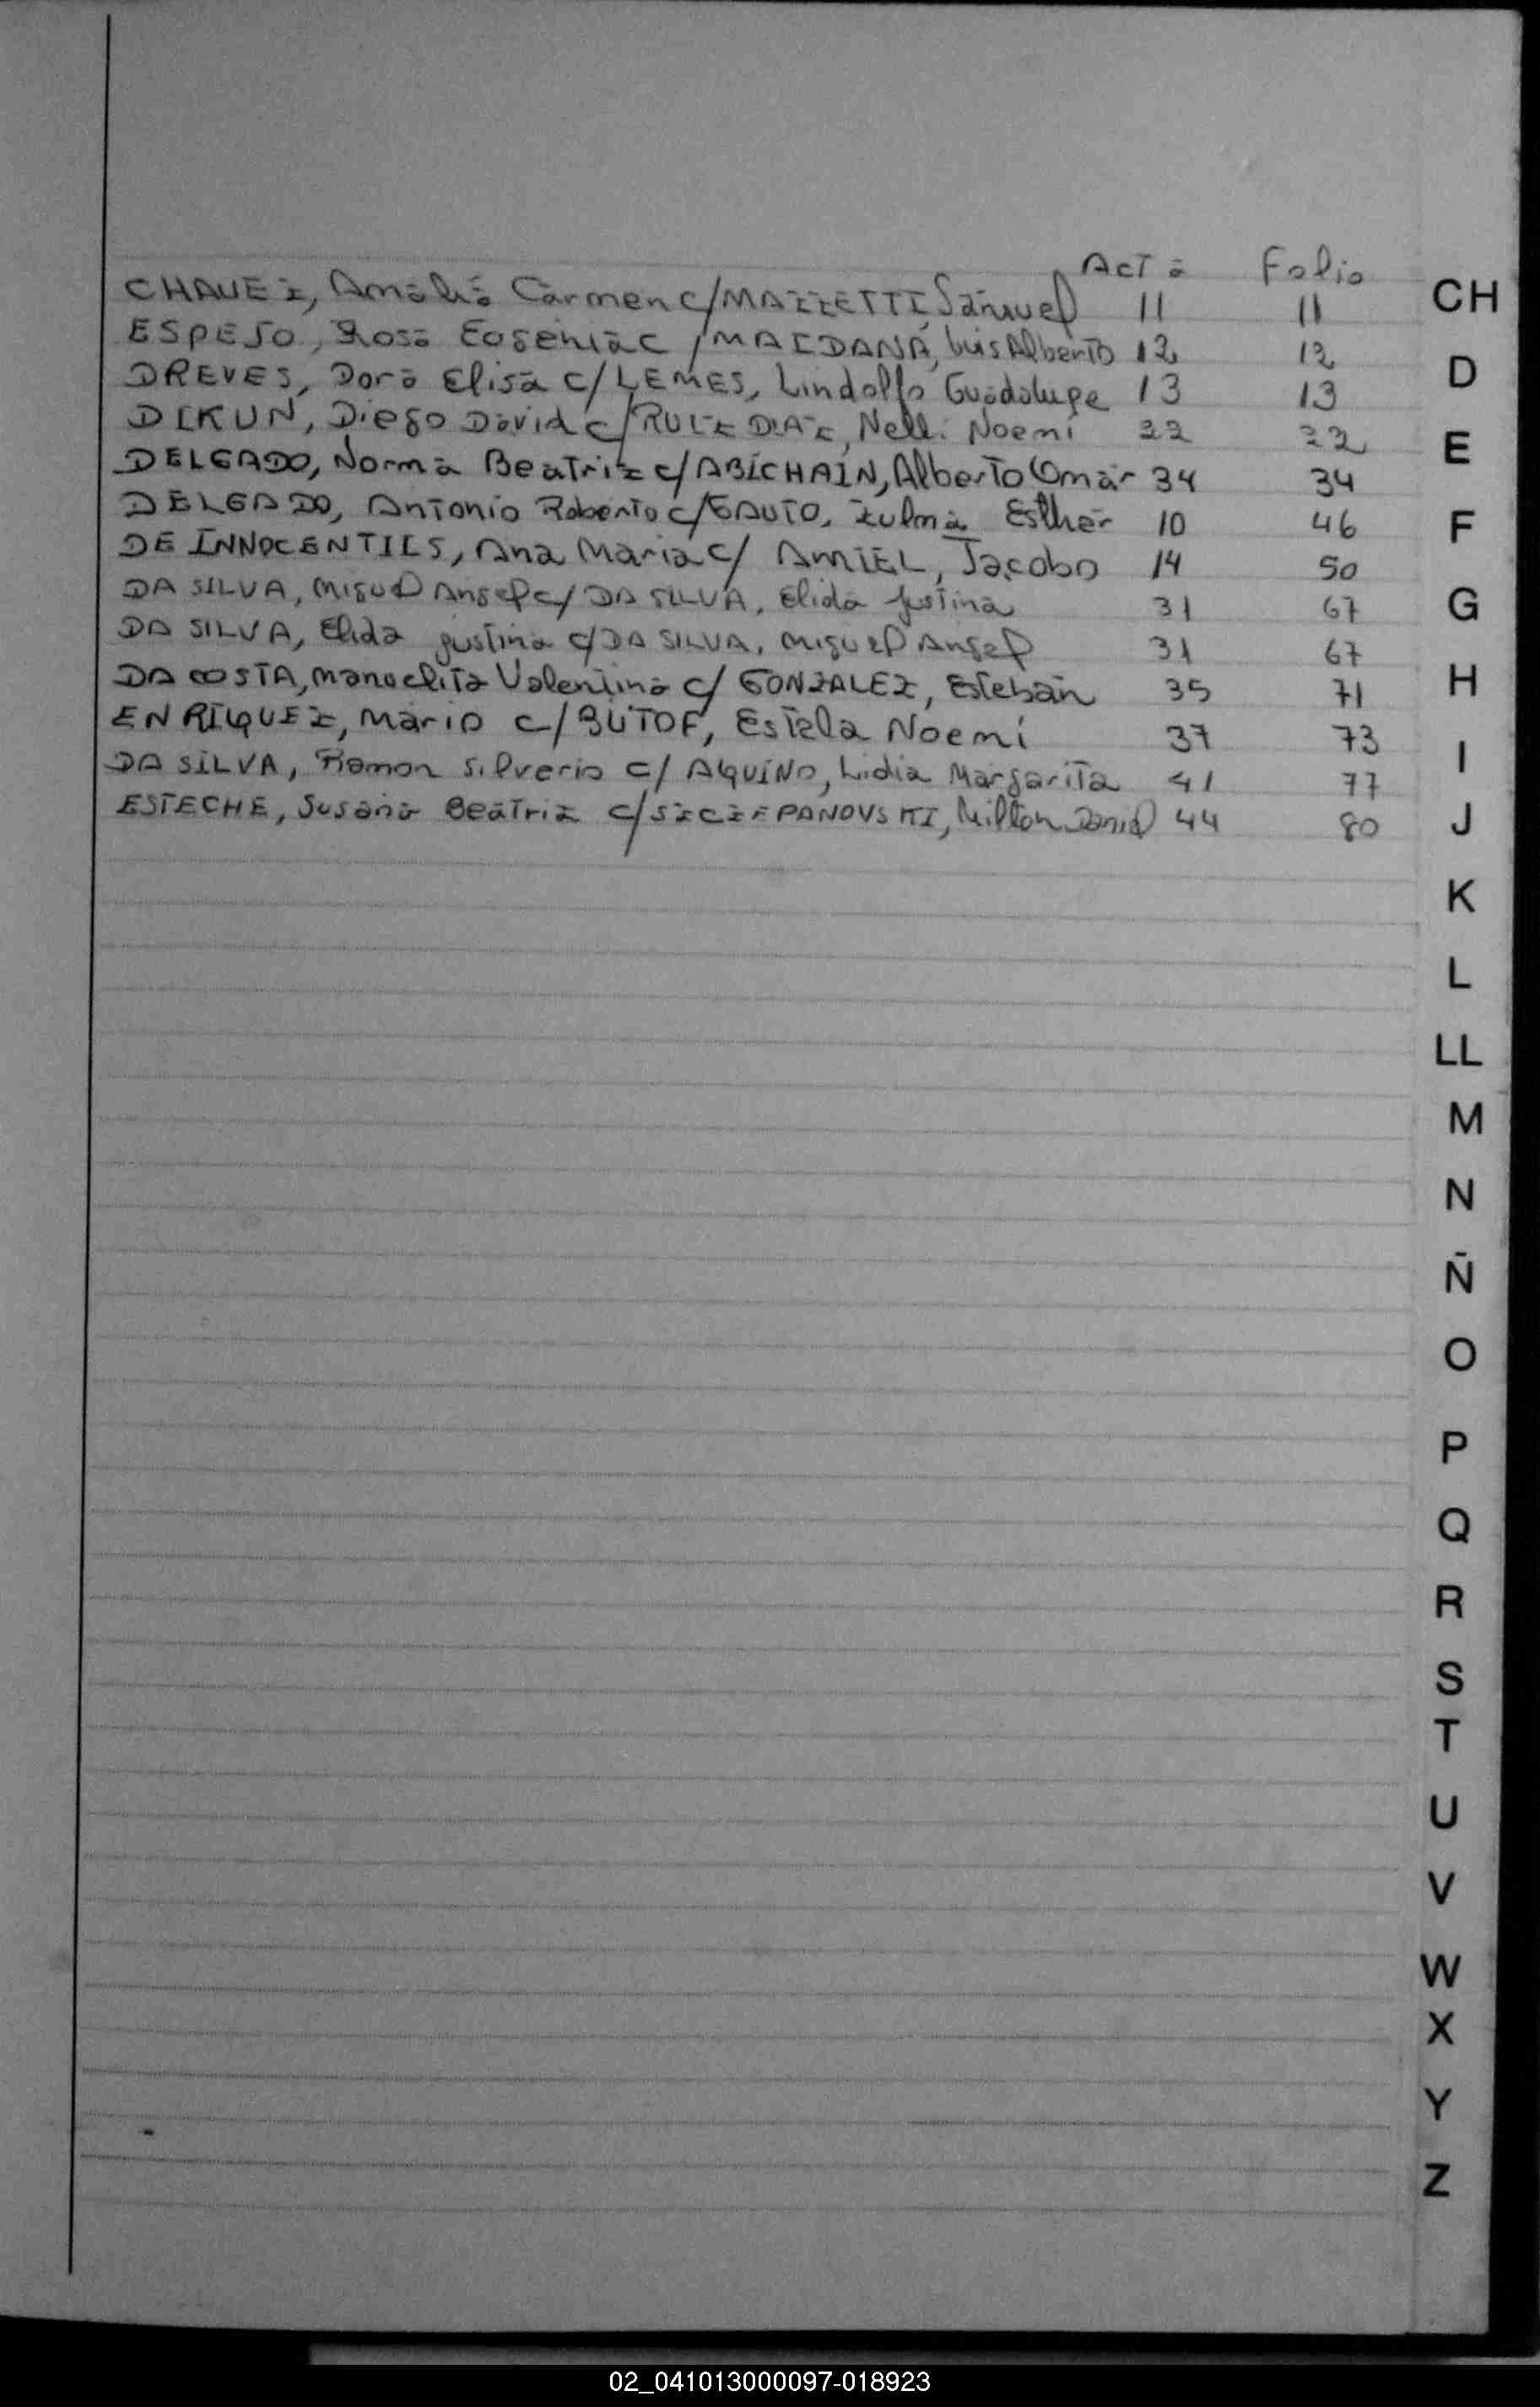 Acta Folio
CHAVEZ, Amalia Carmen c/MAZZETTI, Samuel 11 11
ESPEJO, Rosa Eugenia c/MAIDANA, Luis Alberto 12 12
DREVES, Dora Elisa c/LEMES, Lindolfo Guadalupe 13 13
DIKUN, Diego David c/RUIZ DIAZ, Nelli Noemi 22 22
DELGADO, Norma Beatriz c/ABICHAIN, Alberto Omar 34 34
DELGADO, Antonio Roberto c/GAUTO, Zulma Esther 10 46
DE INNOCENTIIS, Ana Maria c/ AMIEL, Jacobo 14 50
DA SILVA, Miguel Angel c/ DA SILVA, Elida Justina 31 67
DA SILVA, Elida Justina c/DA SILVA, Miguel Angel 31 67
DA COSTA, Manuelita Valentina c/ GONZALEZ, Esteban 35 71
ENRIQUEZ, Mario c/BUTOF, Estela Noemi 37 73
DA SILVA, Ramon Silverio c/ AQUINO, Lidia Margarita 41 77
ESTECHE, Susana Beatriz c/SZCZEPANOVSKI, Milton Daniel 44 80
CH
D
E
F
G
H
I
J
K
L
LL
M
N
Ñ
O
P
Q
R
S
T
U
V
W
X
Y
Z
02_041013000097-018923